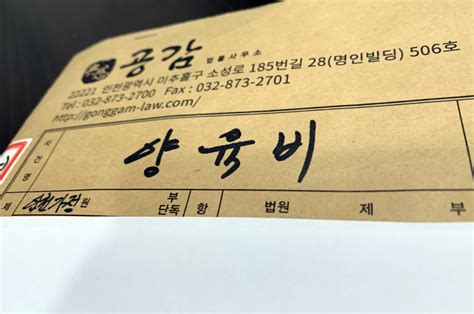 공감 법률사무소
22221 인천광역시 미추홀구 소성로 185번길 28(명인빌딩) 506호
Tel : 032-873-2700 Fax : 032-873-2701
http://gonggam-law.com/
사건명 양육비
제 인천가정 원 부 단독 항 법원 제 부